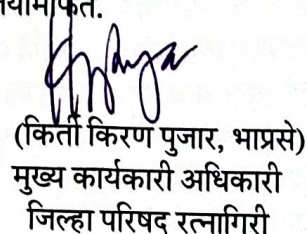 (किर्ती किरण पुजार, भाप्रसे)
मुख्य कार्यकारी अधिकारी
जिल्हा परिषद रत्नागिरी